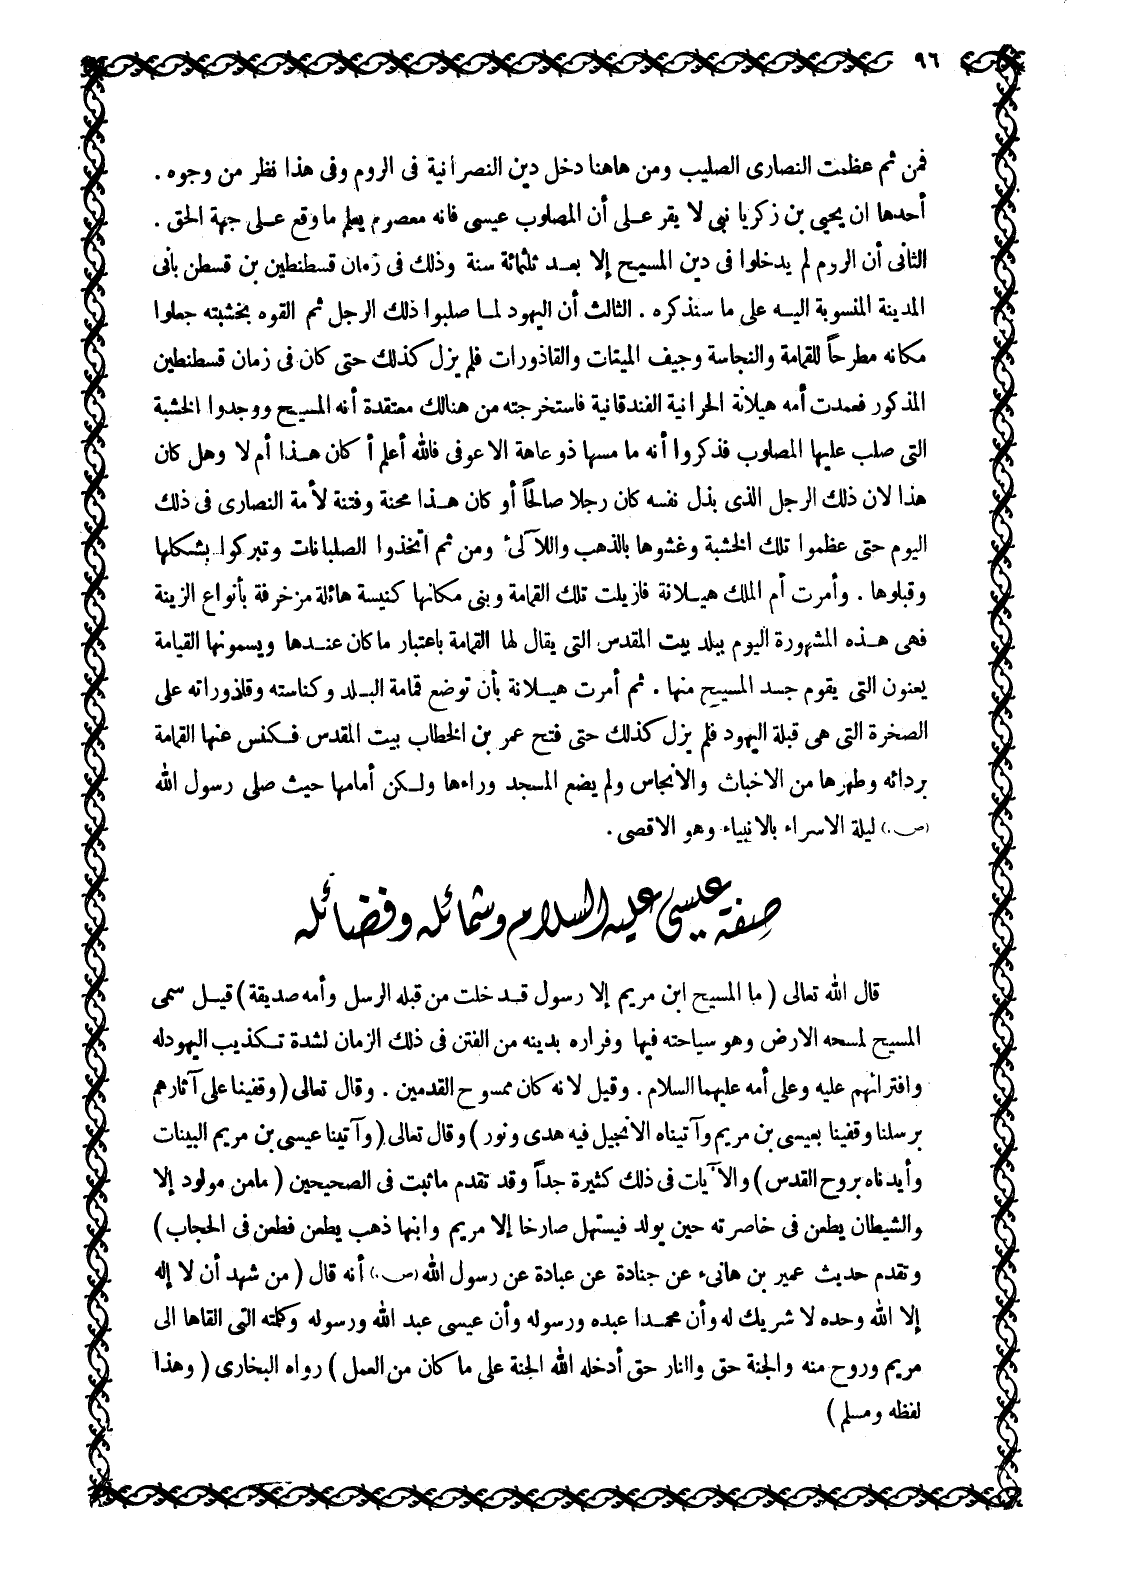 ٩٦
فمن ثم عظمت النصارى الصليب ومن هاهنا دخل دين النصرانية فى الروم وفى هذا نظر من وجوه .
أحدها ان يحيى بن زكريا نبى لا يقر على أن المصلوب عيسى فانه معصوم يعلم ما وقع على جهة الحق .
الثانى أن الروم لم يدخلوا فى دين المسيح إلا بعد ثلثمائة سنة وذلك فى زمان قسطنطين بن قسطن بانى
المدينة المنسوبة اليه على ما سنذكره . الثالث أن اليهود لما صلبوا ذلك الرجل ثم القوه بخشبته جعلوا
مكانه مطرحاً للقمامة والنجاسة وجيف الميتات والقاذورات فلم يزل كذلك حتى كان فى زمان قسطنطين
المذكور فعمدت أمه هيلانة الحرانية الفندقانية فاستخرجته من هنالك معتقدة أنه المسيح ووجدوا الخشبة
التى صلب عليها المصلوب فذكروا أنه ما مسها ذو عاهة الا عوفى فالله أعلم أ كان هذا أم لا وهل كان
هذا لان ذلك الرجل الذى بذل نفسه كان رجلا صالحاً أو كان هذا محنة وفتنة لأمة النصارى فى ذلك
اليوم حتى عظموا تلك الخشبة وغشوها بالذهب واللآلئ ومن ثم اتخذوا الصلبانات وتبركوا بشكلها
وقبلوها . وأمرت أم الملك هيلانة فازيلت تلك القمامة وبنى مكانها كنيسة هائلة مزخرفة بأنواع الزينة
فهى هذه المشهورة اليوم ببلد بيت المقدس التى يقال لها القمامة باعتبار ما كان عندها ويسمونها القيامة
يعنون التى يقوم جسد المسيح منها . ثم أمرت هيلانة بأن توضع قمامة البلد وكناسته وقاذوراته على
الصخرة التى هى قبلة اليهود فلم يزل كذلك حتى فتح عمر بن الخطاب بيت المقدس فكنس عنها القمامة
بردائه وطهرها من الاخباث والانجاس ولم يضع المسجد وراءها ولكن أمامها حيث صلى رسول الله
(ص.) ليلة الاسراء بالانبياء وهو الاقصى .
صفة عيسى عليه السلام وشمائله وفضائله
قال الله تعالى ( ما المسيح ابن مريم إلا رسول قد خلت من قبله الرسل وأمه صديقة ) قيل سمى
المسيح لمسحه الارض وهو سياحته فيها وفراره بدينه من الفتن فى ذلك الزمان لشدة تكذيب اليهود له
وافترائهم عليه وعلى أمه عليهما السلام . وقيل لانه كان ممسوح القدمين . وقال تعالى ( وقفينا على آثارهم
برسلنا وقفينا بعيسى بن مريم وآتيناه الانجيل فيه هدى ونور ) وقال تعالى ( وآتينا عيسى بن مريم البينات
وأيدناه بروح القدس ) والآيات فى ذلك كثيرة جداً وقد تقدم ما ثبت فى الصحيحين ( ما من مولود إلا
والشيطان يطعن فى خاصرته حين يولد فيستهل صارخا إلا مريم وابنها ذهب يطعن فطعن فى الحجاب )
وتقدم حديث عمير بن هانىء عن جنادة عن عبادة عن رسول الله (ص.) أنه قال ( من شهد أن لا إله
إلا الله وحده لا شريك له وأن محمدا عبده ورسوله وأن عيسى عبد الله ورسوله وكلمته التى القاها الى
مريم وروح منه والجنة حق واالنار حق أدخله الله الجنة على ما كان من العمل ) رواه البخارى ( وهذا
لفظه ومسلم )